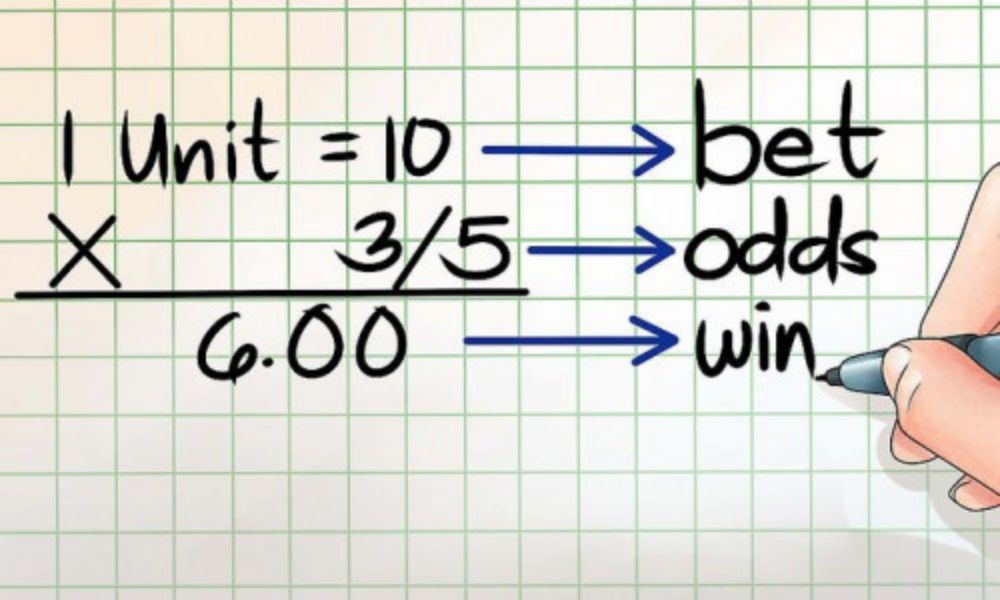 1 Unit = 10 → bet
X 3/5 → odds
6.00 → win